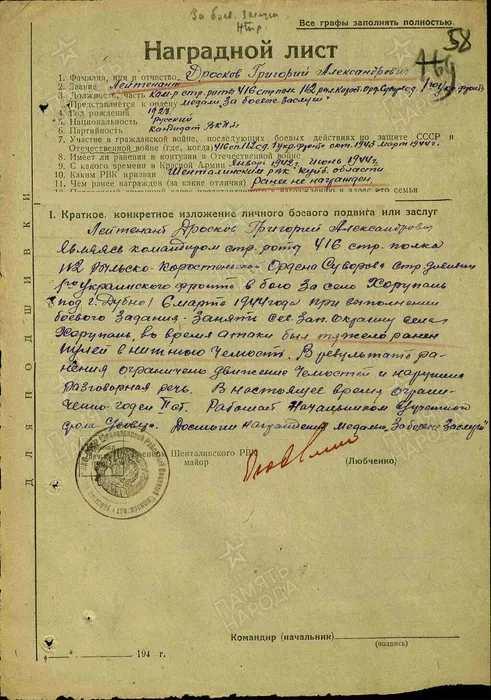 За боев. заслуги
Все графы заполнять полностью.
58
Наградной лист
1. Фамилия, имя и отчество Дросков Григорий Александрович
2. Звание Лейтенант
3. Должность, часть ком-р стр. роты 416 стр. полк 112
Представляется к ордену медали „За боевые заслуги"
4. Год рождения
5. Национальность русский
6. Партийность Кандидат ВКП/б
7. Участие в гражданской войне, последующих боевых действиях по защите СССР и
Отечественной войне (где, когда) 416 сп 112 сд 1 укр. фронт окт. 1943 март 1944 г.
8. Имеет ли ранения и контузии в Отечественной войне
9. С какого времени в Красной Армии Январь 1942 г.
10. Каким РВК призван Шенталинским РВК Куйб. области
11. Чем ранее награжден (за какие отличия) Ранее не награжден
I. Краткое, конкретное изложение личного боевого подвига или заслуг
Лейтенант Дросков Григорий Александрович
являясь командиром стр. роты 416 стр. полка
112 Рыльско-Коростенской Ордена Суворова стр. дивизии
1го Украинского фронта в бою за село Хорупань
под г. Дубно 16 марта 1944 года при выполнении
боевого задания - Занять Сев. Зап. Окраину села
Хорупань, во время атаки был тяжело ранен
пулей в нижнюю челюсть. В результате ра-
нения ограничено движение челюстей и нарушена
разговорная речь. В настоящее время ограни-
ченно-годен II ст. Работает Начальником
стола Достоин награждения Медали „За боевые Заслуги"
Военком Шенталинского РВК
майор
(Любченко)
ДЛЯ ПОДШИВКИ
ПАМЯТЬ
НАРОДА
Командир (начальник)
(подпись)
194 г.